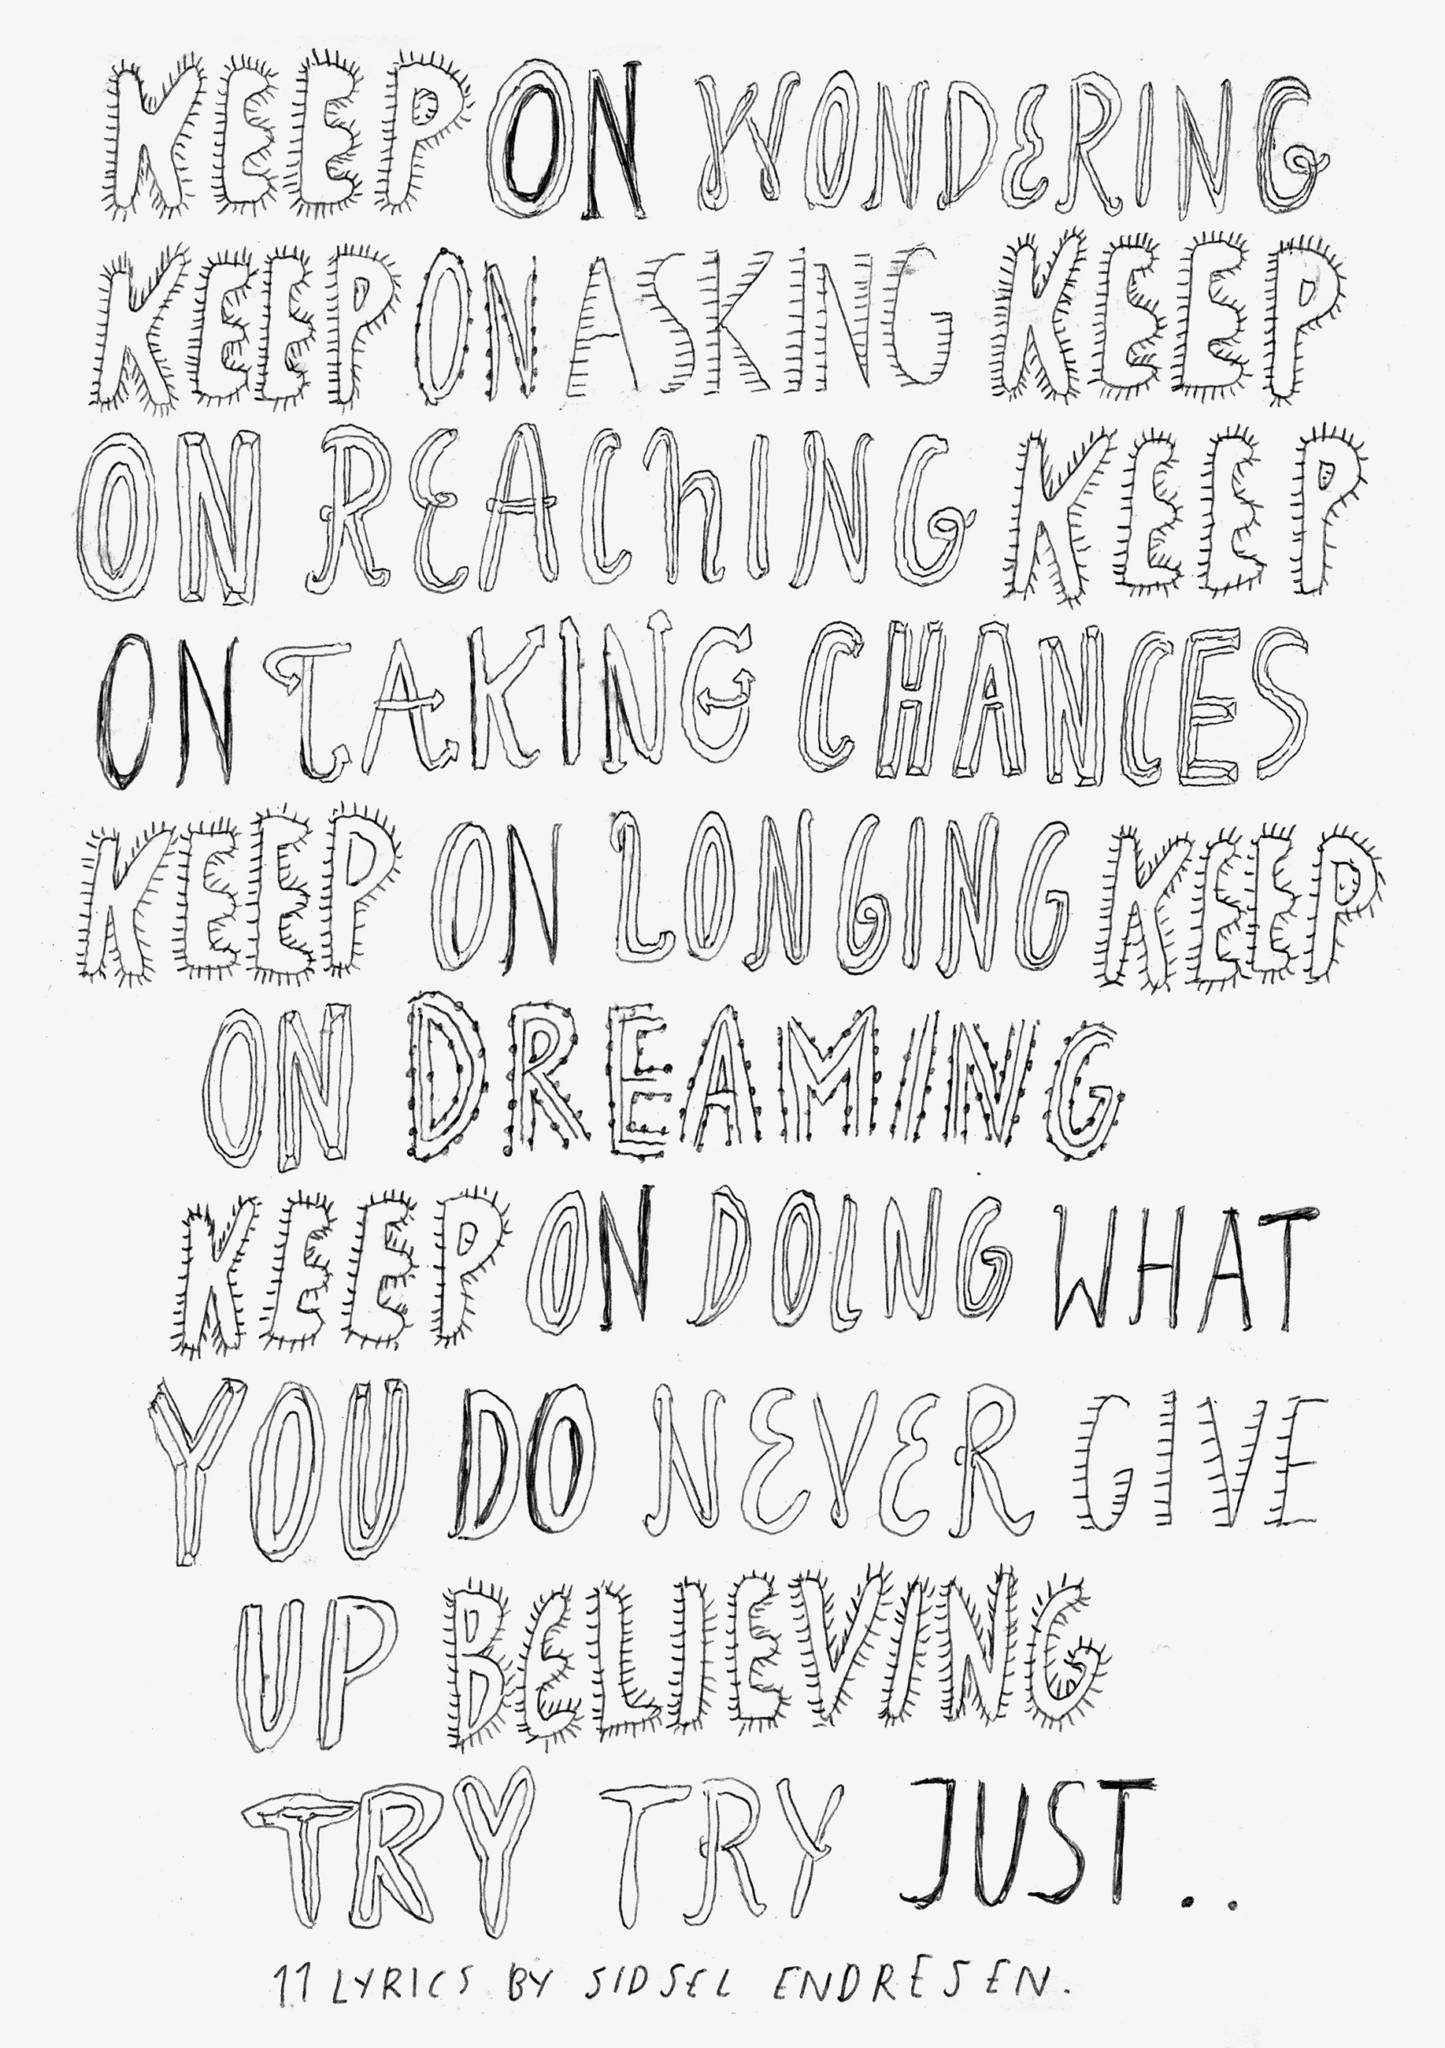 KEEP ON WONDERING
KEEP ON ASKING KEEP
ON REAChING KEEP
ON TAKING CHANCES
KEEP ON LONGING KEEP
ON DREAMING
KEEP ON DOING WHAT
YOU DO NEVER GIVE
UP BELIEVING
TRY TRY JUST..
11 LYRICS BY SIDSEL ENDRESEN.